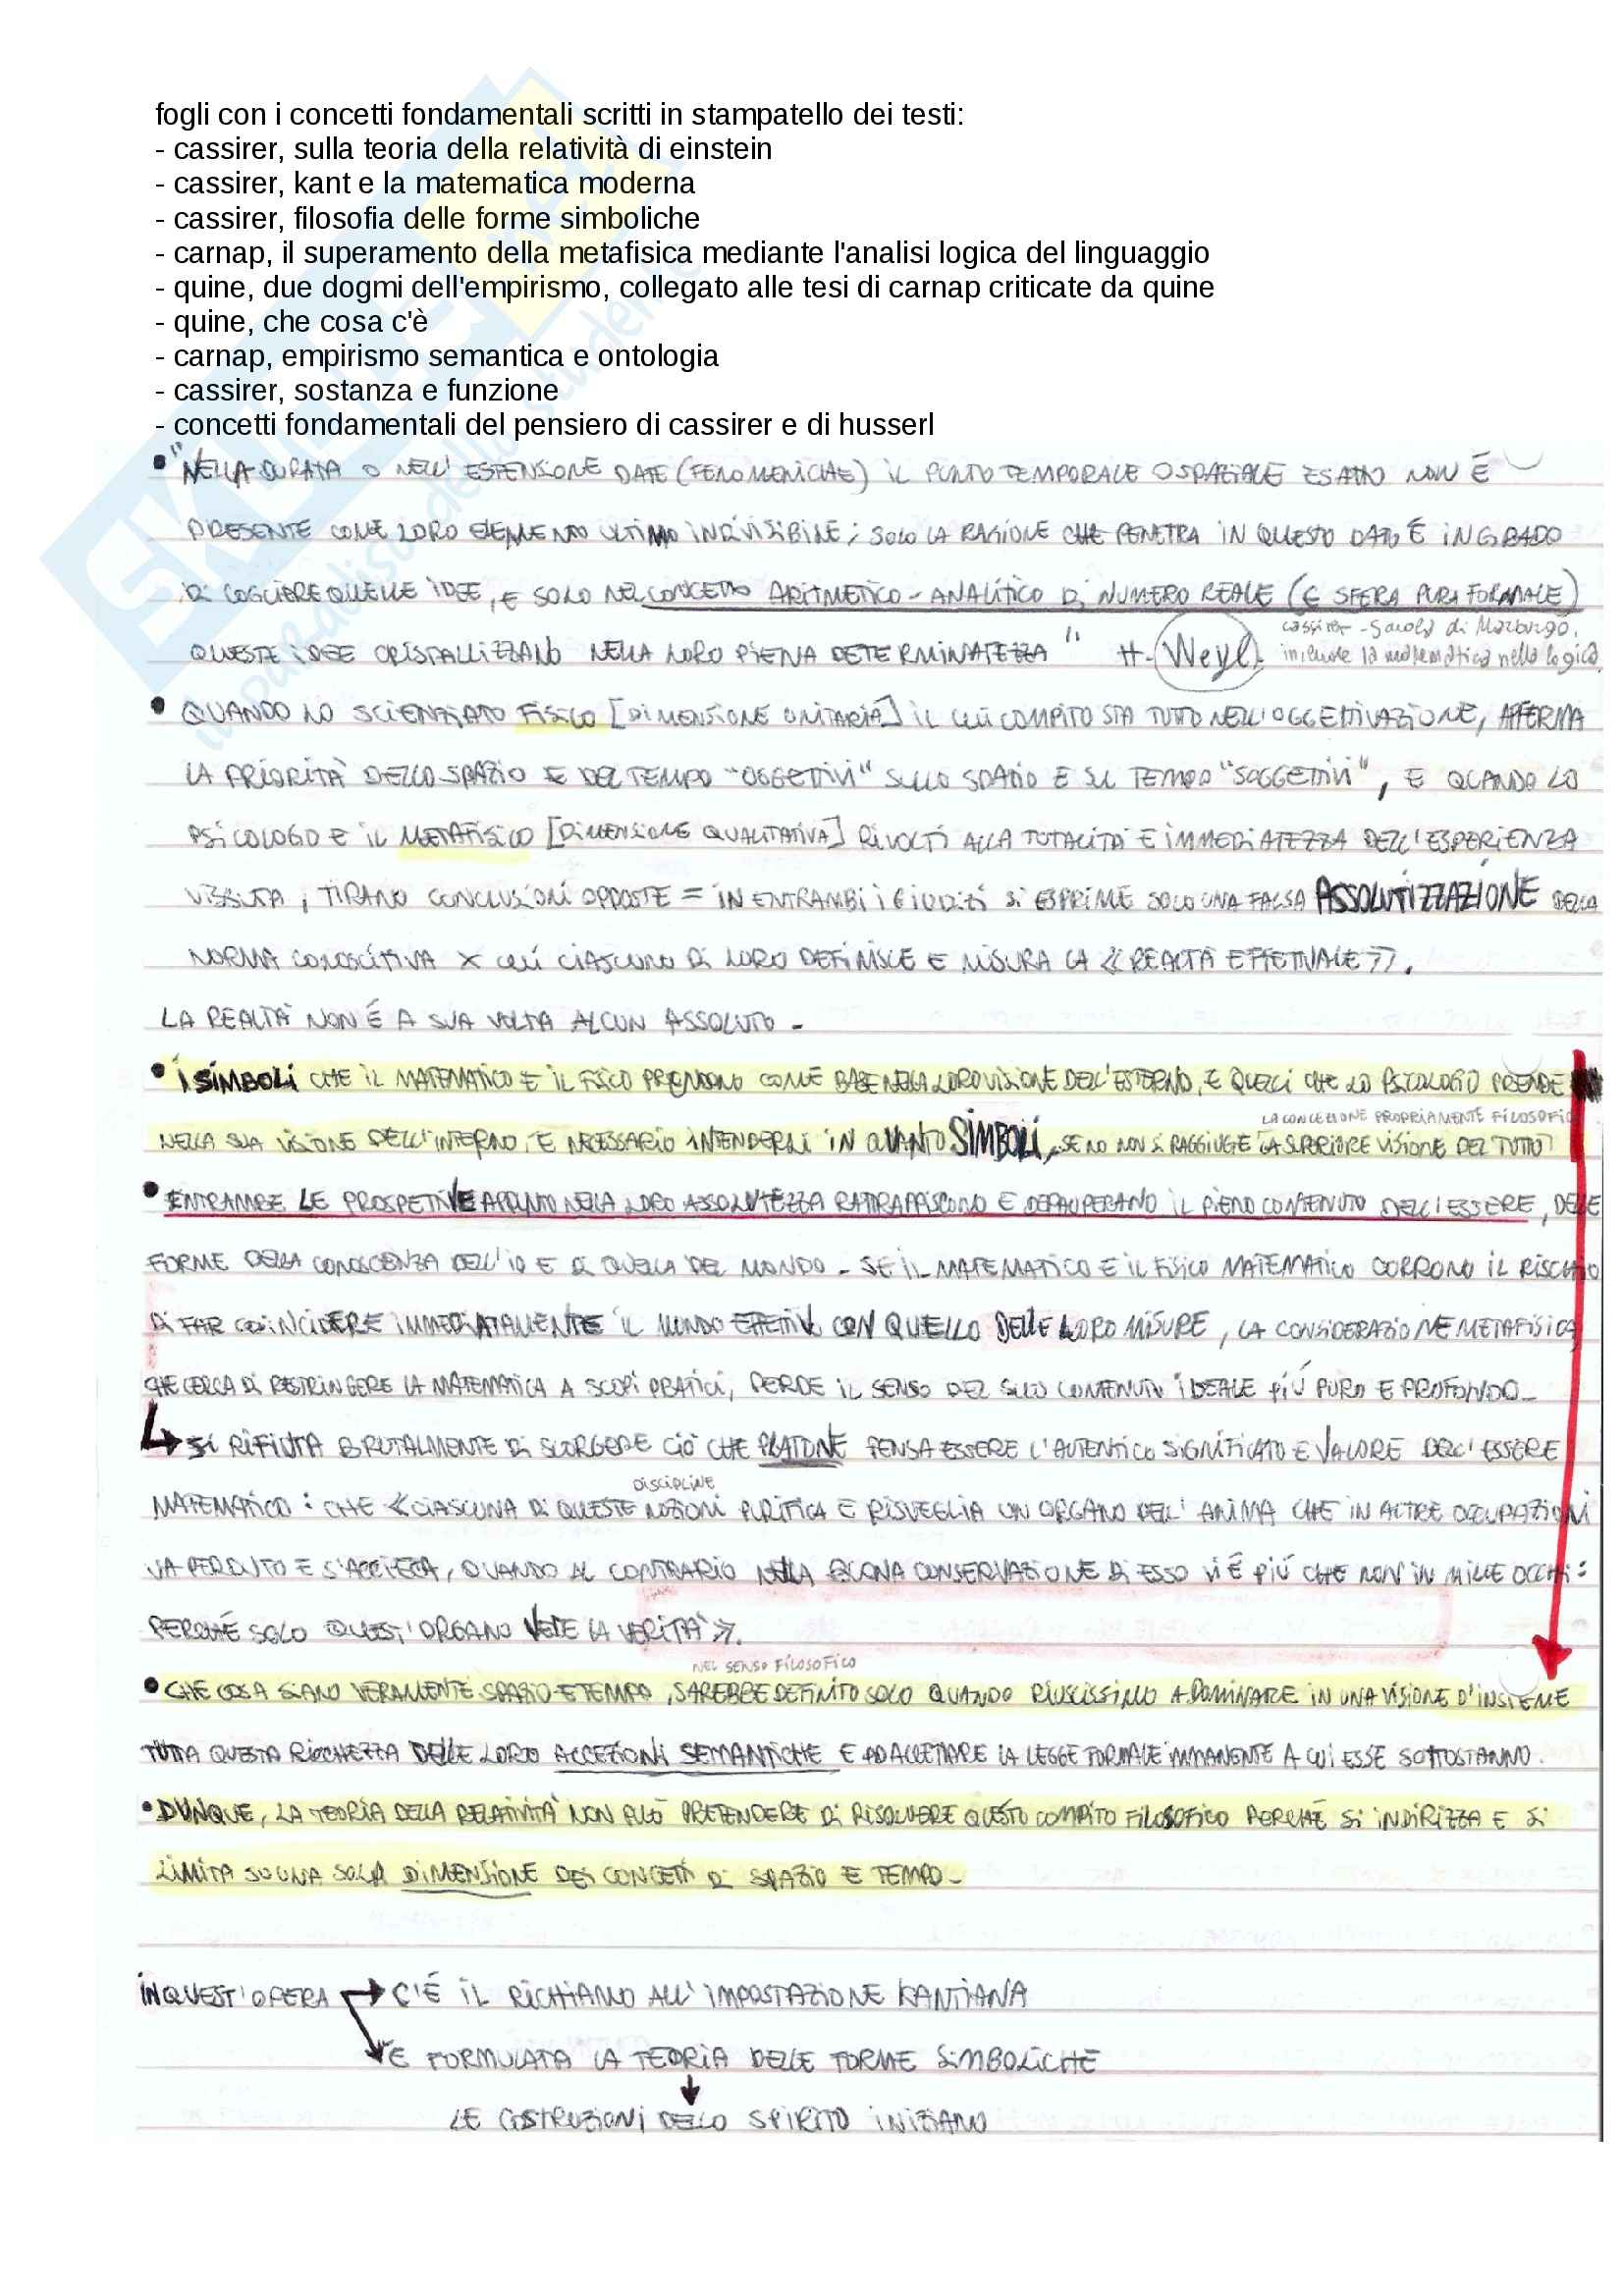 fogli con i concetti fondamentali scritti in stampatello dei testi:
- cassirer, sulla teoria della relatività di einstein
- cassirer, kant e la matematica moderna
- cassirer, filosofia delle forme simboliche
- carnap, il superamento della metafisica mediante l'analisi logica del linguaggio
- quine, due dogmi dell'empirismo, collegato alle tesi di carnap criticate da quine
- quine, che cosa c'è
- carnap, empirismo semantica e ontologia
- cassirer, sostanza e funzione
- concetti fondamentali del pensiero di cassirer e di husserl
• "NELLA DURATA O NELL'ESTENSIONE DATE (FENOMENICHE) IL PUNTO TEMPORALE O SPAZIALE ESATTO NON È
PRESENTE COME LORO ELEMENTO ULTIMO INDIVISIBILE; SOLO LA RAGIONE CHE PENETRA IN QUESTO DATO È IN GRADO
DI COGLIERE QUELLE IDEE, E SOLO NEL CONCETTO ARITMETICO-ANALITICO DI NUMERO REALE (E SFERA PURA FORMALE)
QUESTE IDEE CRISTALLIZZANO NELLA LORO PIENA DETERMINATEZZA". H. Weyl. cassirer - Scuola di Marburgo,
include la matematica nella logica.
• QUANDO LO SCIENZIATO FISICO [DIMENSIONE UNITARIA] IL CUI COMPITO STA TUTTO NELL'OGGETTIVAZIONE, AFFERMA
LA PRIORITÀ DELLO SPAZIO E DEL TEMPO "OGGETTIVI" SULLO SPAZIO E SUL TEMPO "SOGGETTIVI", E QUANDO LO
PSICOLOGO E IL METAFISICO [DIMENSIONE QUALITATIVA] RIVOLTI ALLA TOTALITÀ E IMMEDIATEZZA DELL'ESPERIENZA
VISSUTA, TIRANO CONCLUSIONI OPPOSTE = IN ENTRAMBI I GIUDIZI SI ESPRIME SOLO UNA FALSA ASSOLUTIZZAZIONE DELLA
NORMA CONOSCITIVA X CUI CIASCUNO DI LORO DEFINISCE E MISURA LA «REALTÀ EFFETTUALE».
LA REALTÀ NON È A SUA VOLTA ALCUN ASSOLUTO -
• I SIMBOLI CHE IL MATEMATICO E IL FISICO PRENDONO COME BASE NELLA LORO VISIONE DELL'ESTERNO, E QUELLI CHE LO PSICOLOGO PRENDE
LA CONCEZIONE PROPRIAMENTE FILOSOFICA
NELLA SUA VISIONE DELL'INTERNO, È NECESSARIO INTENDERLI IN QUANTO SIMBOLI, SE NO NON SI RAGGIUNGE LA SUPERIORE VISIONE DEL TUTTO
• ENTRAMBE LE PROSPETTIVE APPUNTO NELLA LORO ASSOLUTEZZA RATTRAPPISCONO E DEPAUPERANO IL PIENO CONTENUTO DELL'ESSERE, DELLE
FORME DELLA CONOSCENZA DELL'IO E DI QUELLA DEL MONDO - SE IL MATEMATICO E IL FISICO MATEMATICO CORRONO IL RISCHIO
DI FAR COINCIDERE IMMEDIATAMENTE IL MONDO EFFETTIVO CON QUELLO DELLE LORO MISURE, LA CONSIDERAZIONE METAFISICA,
CHE CERCA DI RESTRINGERE LA MATEMATICA A SCOPI PRATICI, PERDE IL SENSO DEL SUO CONTENUTO IDEALE PIÙ PURO E PROFONDO -
↳ SI RIFIUTA BRUTALMENTE DI SCORGERE CIÒ CHE PLATONE PENSA ESSERE L'AUTENTICO SIGNIFICATO E VALORE DELL'ESSERE
DISCIPLINE
MATEMATICO: CHE «CIASCUNA DI QUESTE NOZIONI PURIFICA E RISVEGLIA UN ORGANO DELL'ANIMA CHE IN ALTRE OCCUPAZIONI
VA PERDUTO E S'ACCIECA, QUANDO AL CONTRARIO NELLA BUONA CONSERVAZIONE DI ESSO VI È PIÙ CHE NON IN MILLE OCCHI:
PERCHÉ SOLO QUEST'ORGANO VEDE LA VERITÀ».
NEL SENSO FILOSOFICO
• CHE COSA SIANO VERAMENTE SPAZIO E TEMPO, SAREBBE DEFINITO SOLO QUANDO RIUSCISSIMO A DOMINARE IN UNA VISIONE D'INSIEME
TUTTA QUESTA RICCHEZZA DELLE LORO ACCEZIONI SEMANTICHE E AD ACCETTARE LA LEGGE FORMALE IMMANENTE A CUI ESSE SOTTOSTANNO.
• DUNQUE, LA TEORIA DELLA RELATIVITÀ NON PUÒ PRETENDERE DI RISOLVERE QUESTO COMPITO FILOSOFICO PERCHÉ SI INDIRIZZA E SI
LIMITA SU UNA SOLA DIMENSIONE DEI CONCETTI DI SPAZIO E TEMPO -
IN QUEST'OPERA → C'È IL RICHIAMO ALL'IMPOSTAZIONE KANTIANA
È FORMULATA LA TEORIA DELLE FORME SIMBOLICHE
↓
LE COSTRUZIONI DELLO SPIRITO INIZIANO